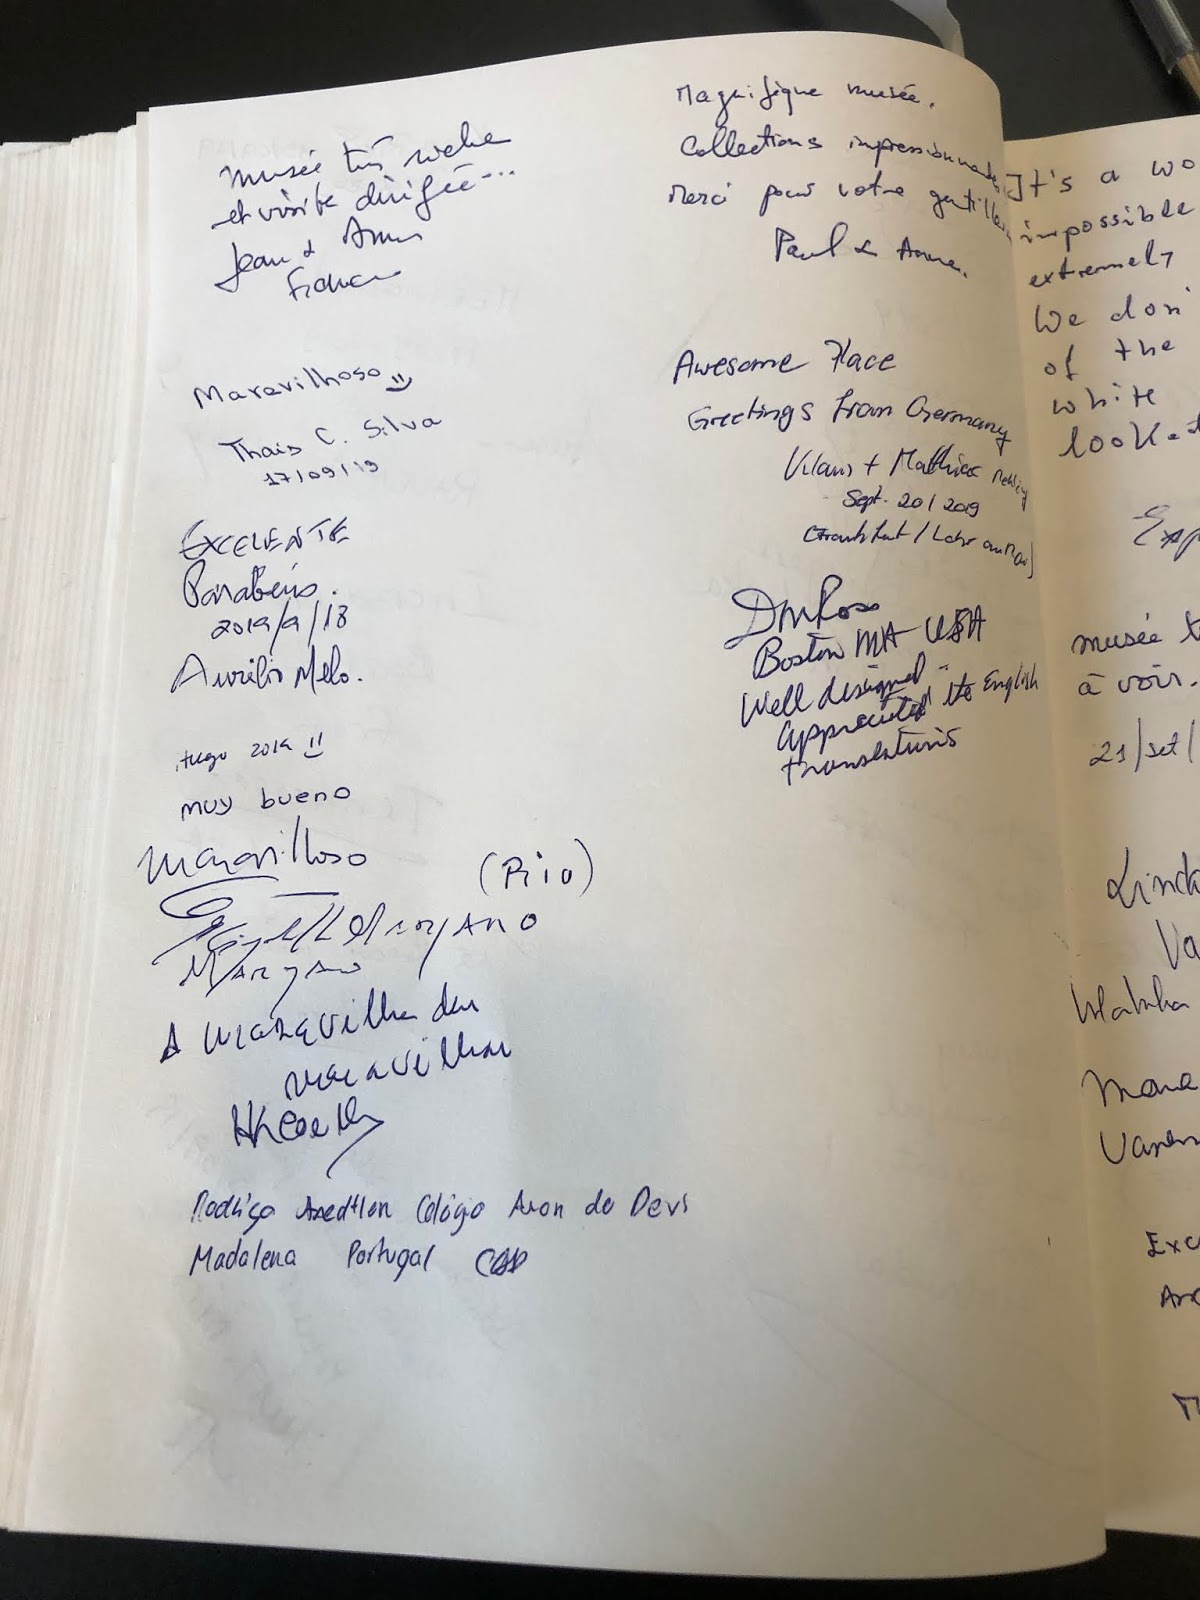 musée très riche
et visite dirigée...
Jean &
France
Maravilhoso
Thais C. Silva
17/09/19
EXCELENTE
Parabéns.
2019/9/18
Aurélio Melo.
Hugo 2019
muy bueno
Maravilloso
(Rio)
A maravilha das
maravilhas
Rodrigo Colégio de
Madalena Portugal
Magnifique musée.
Collections impressionnantes
Merci pour votre gentillesse
Paul & Anne.
Awesome Place
Greetings from Germany
Klaus + Matthias
Sept. 20/2019
Frankfurt / Lohr am Main
Boston MA USA
Well designed -
appreciated the English
translations
It's a wo
impossible
extremely
We don'
of the
white
looked
Exp
musée t
à voir.
21/set/
Linda
Va
Exc